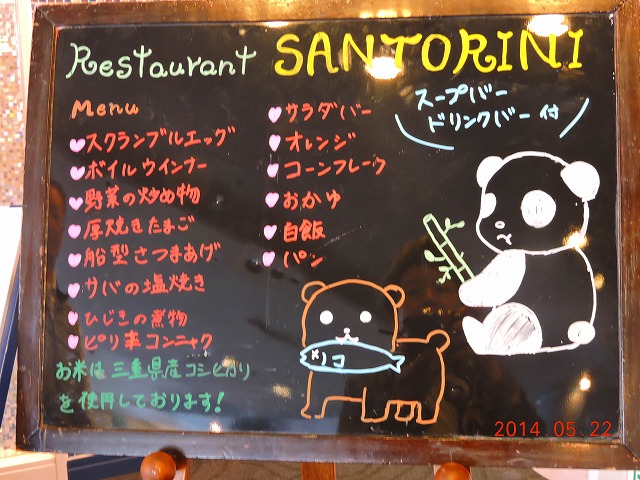 Restaurant SANTORINI
Menu
スクランブルエッグ
ボイルウインナー
野菜の炒め物
厚焼きたまご
船型さつまあげ
サバの塩焼き
ひじきの煮物
ピリ辛コンニャク
サラダバー
オレンジ
コーンフレーク
おかゆ
白飯
パン
スープバー
ドリンクバー付
お米は三重県産コシヒカリ
を使用しております!
2014.05.22